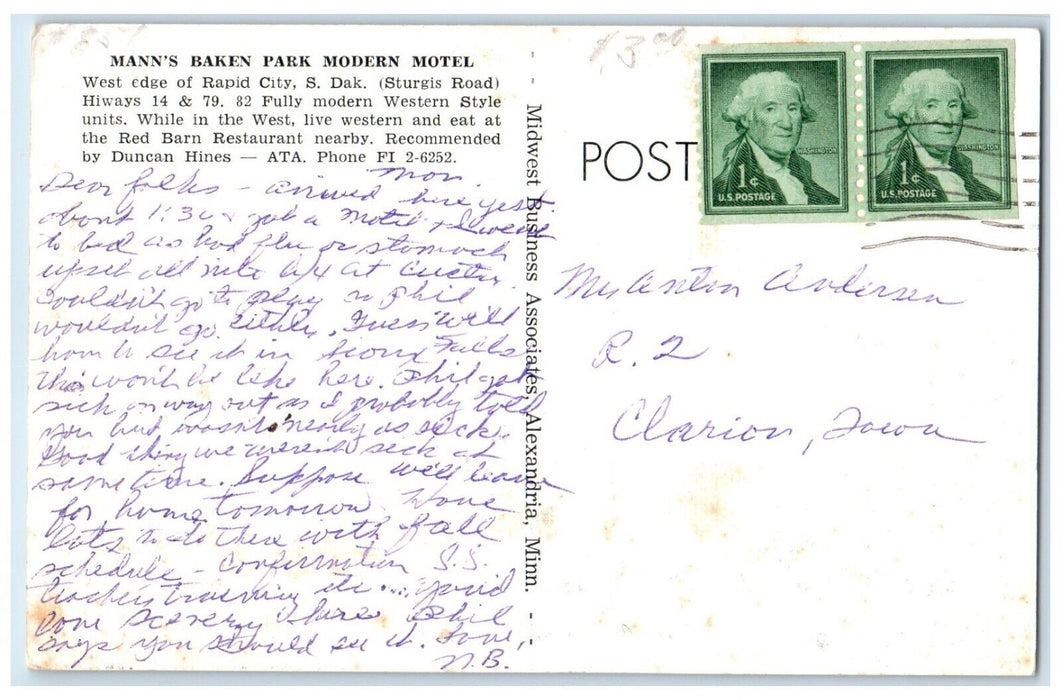 $3.00
MANN'S BAKEN PARK MODERN MOTEL
West edge of Rapid City, S. Dak. (Sturgis Road)
Hiways 14 & 79. 82 Fully modern Western Style
units. While in the West, live western and eat at
the Red Barn Restaurant nearby. Recommended
by Duncan Hines — ATA. Phone FI 2-6252.
Mon.
Dear folks - arrived here yest.
about 1:30 & got a Motel & I went
to bed as had flu or stomach
upset all nite at Custer.
Couldn't go to play so Phil
wouldn't go either. Guess will
have to see it in Sioux Falls
this won't be like here. Phil got
sick on way out as I probably told
you but wasn't nearly as sick.
Good thing we weren't sick at
same time. Suppose will leave
for home tomorrow. Have
lots to do there with fall
schedule - confirmation S.S.
teachers training etc....
scenery here Phil
says you should see it. Love,
N.B.
Midwest Business Associates, Alexandria, Minn.
POST
1¢
WASHINGTON
U.S. POSTAGE
1¢
WASHINGTON
U.S. POSTAGE
Anton Andersen
R. 2
Clarion, Iowa